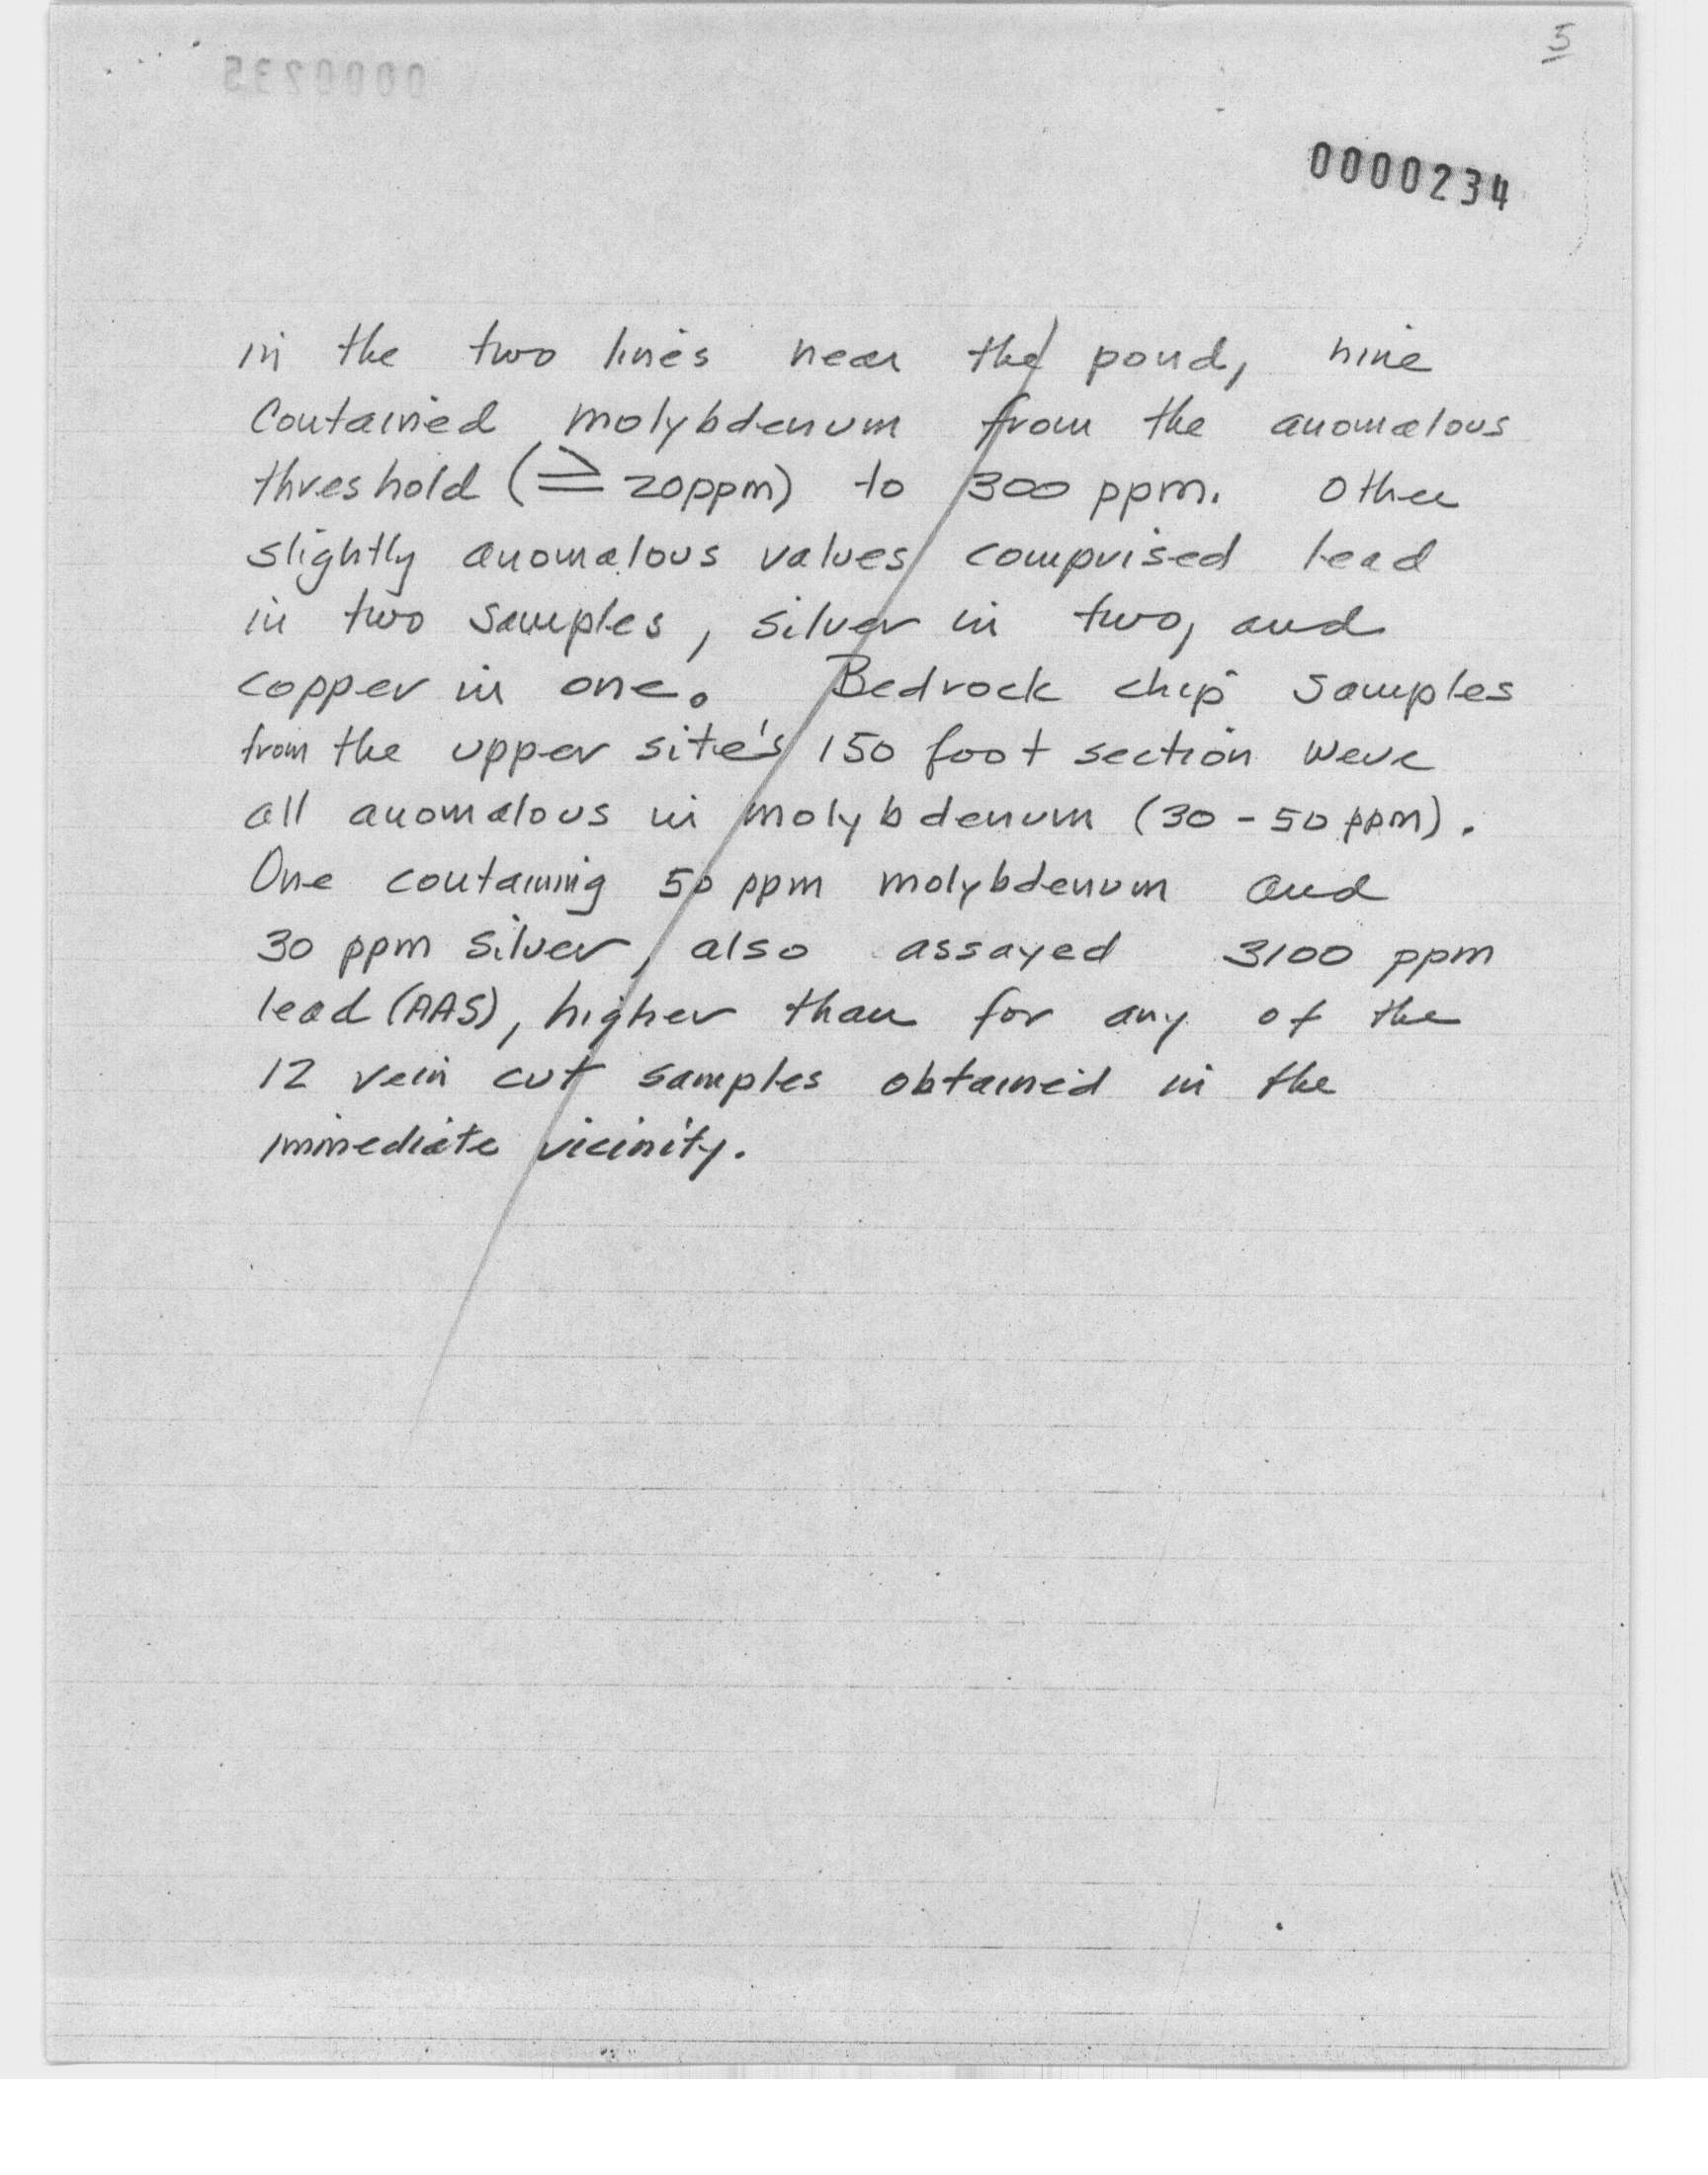 5
0000235
0000234
in the two lines near the pond, nine
contained molybdenum from the anomalous
threshold (≥ 20ppm) to 300 ppm. Other
slightly anomalous values comprised lead
in two samples, silver in two, and
copper in one. Bedrock chip samples
from the upper site's 150 foot section were
all anomalous in molybdenum (30-50 ppm).
One containing 50 ppm molybdenum and
30 ppm silver, also assayed 3100 ppm
lead (AAS), higher than for any of the
12 vein cut samples obtained in the
immediate vicinity.